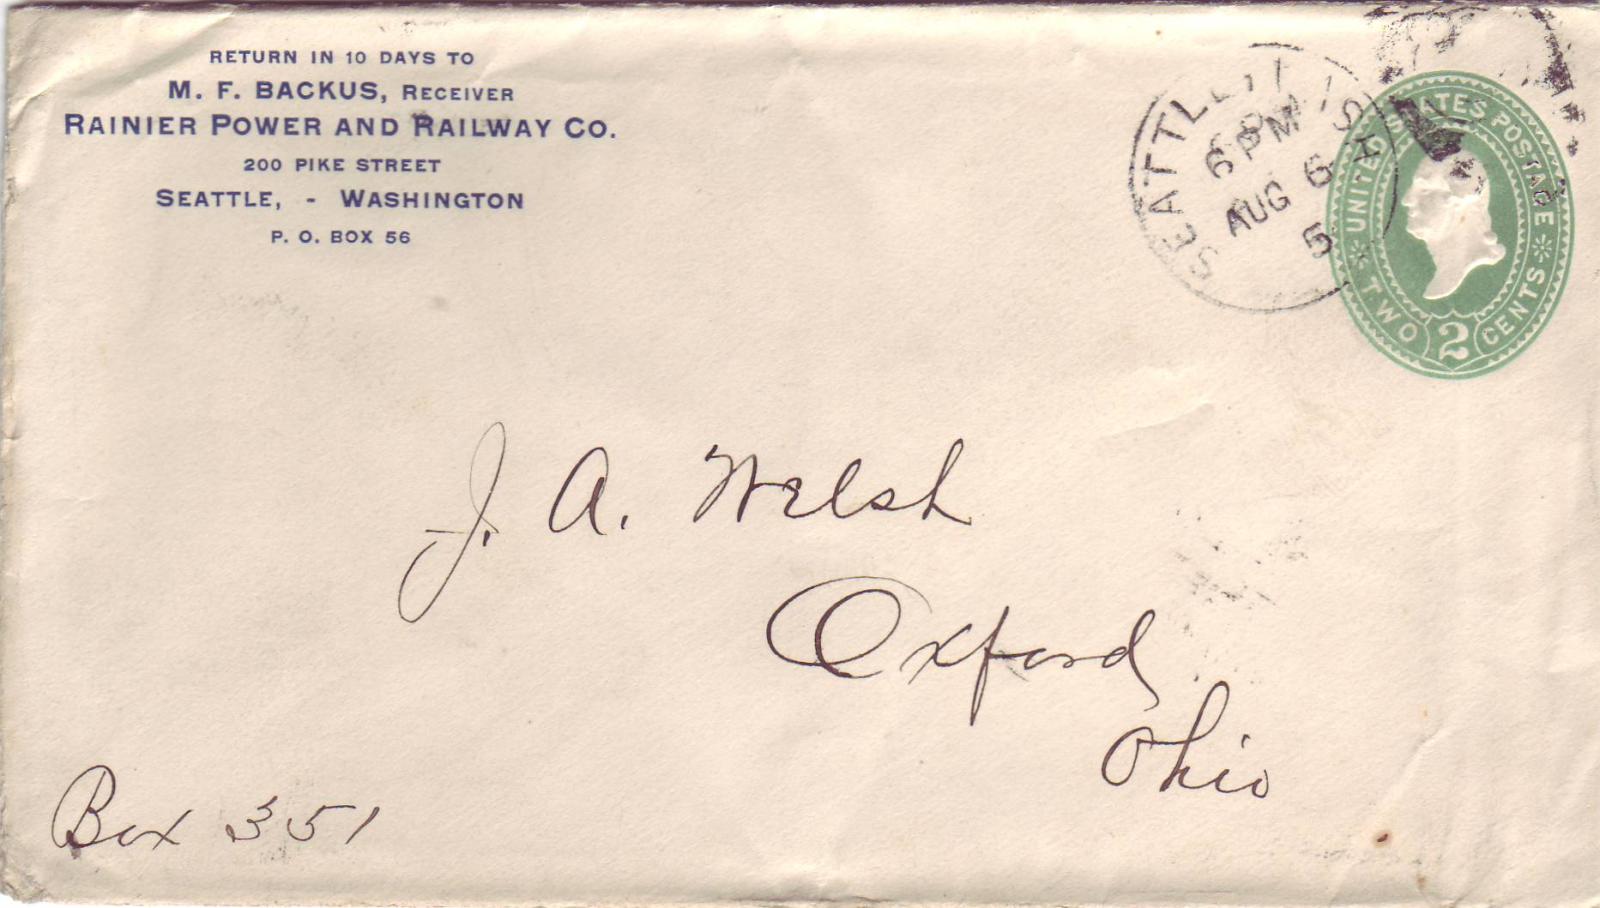 RETURN IN 10 DAYS TO
M. F. BACKUS, RECEIVER
RAINIER POWER AND RAILWAY CO.
200 PIKE STREET
SEATTLE, - WASHINGTON
P. O. BOX 56
SEATTLE
6 PM
AUG 6
5
UNITED STATES POSTAGE
TWO 2 CENTS
J. A. Welsh
Oxford
Ohio
Box 351